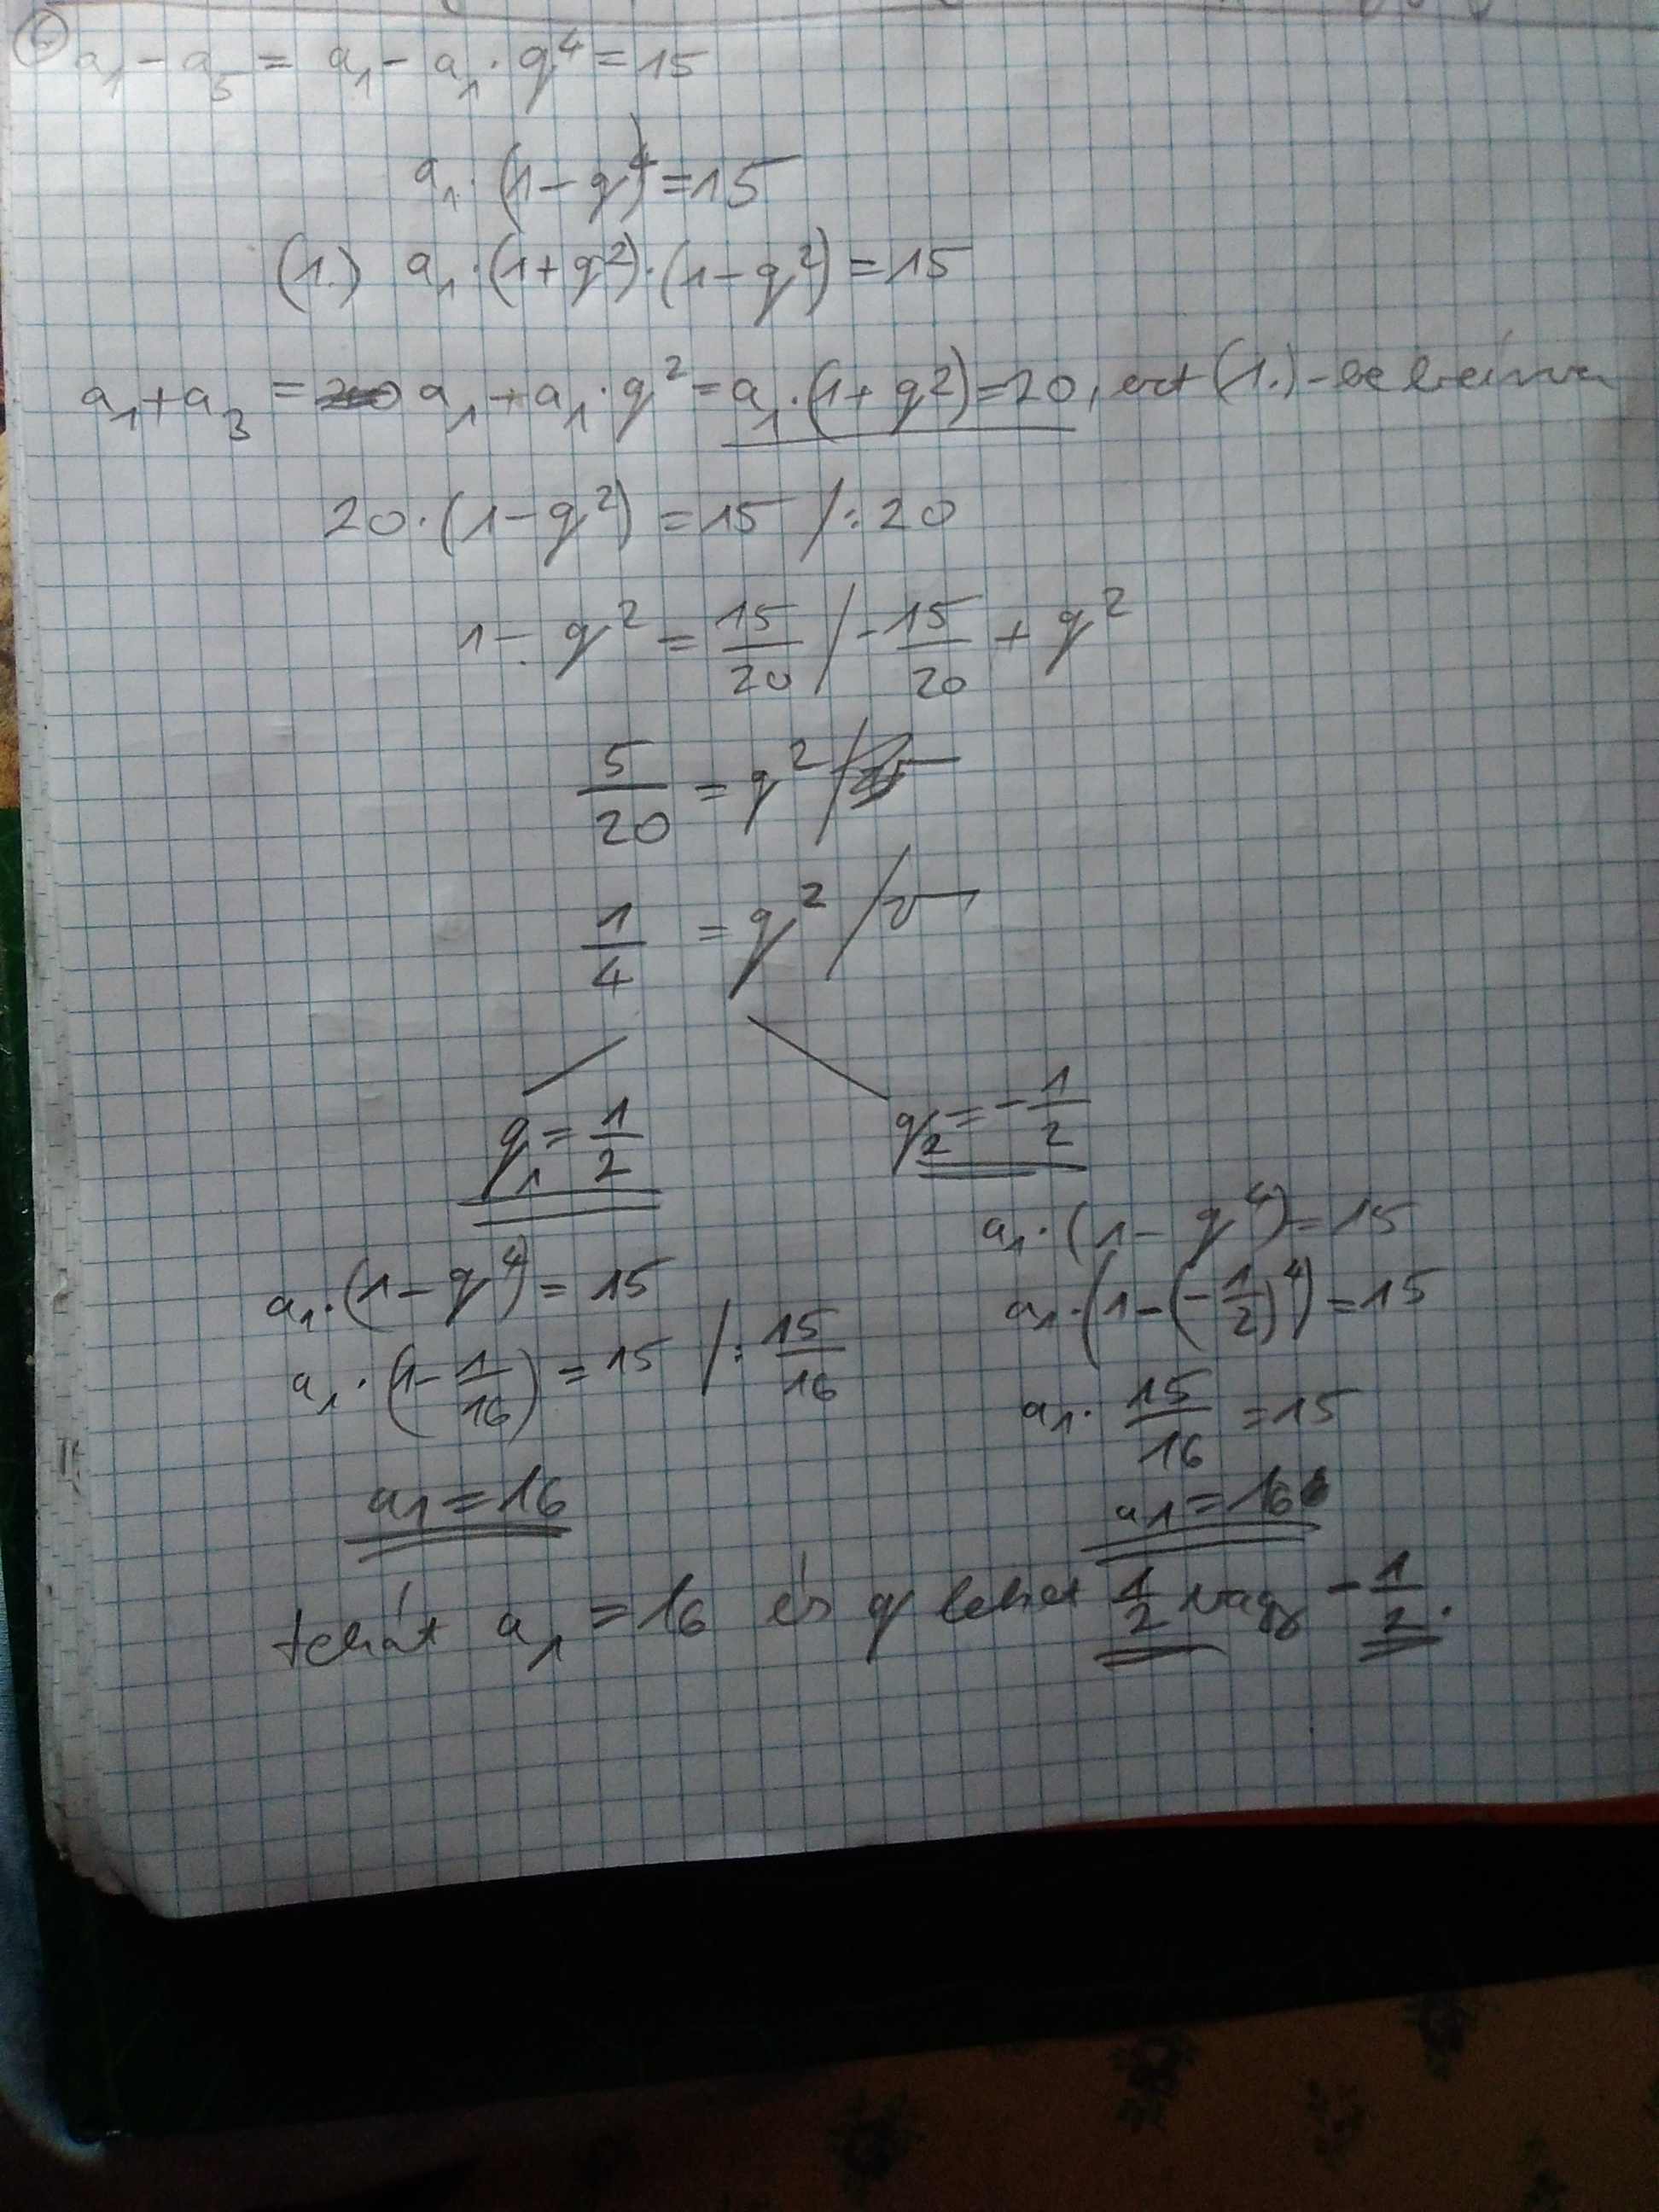 6 a₁ - a₅ = a₁ - a₁ · q⁴ = 15
a₁ · (1 - q⁴) = 15
(1.) a₁ · (1 + q²) · (1 - q²) = 15
a₁ + a₃ = a₁ + a₁ · q² = a₁ · (1 + q²) = 20, ezt (1.) -be beírva
20 · (1 - q²) = 15 / : 20
1 - q² = 15/20 / - 15/20 + q²
5/20 = q² /
1/4 = q² / √
q₁ = 1/2 q₂ = - 1/2
a₁ · (1 - q⁴) = 15 a₁ · (1 - q⁴) = 15
a₁ · (1 - 1/16) = 15 / : 15/16 a₁ · (1 - (- 1/2)⁴) = 15
a₁ · 15/16 = 15
a₁ = 16 a₁ = 16
tehát a₁ = 16 és q lehet 1/2 vagy - 1/2.